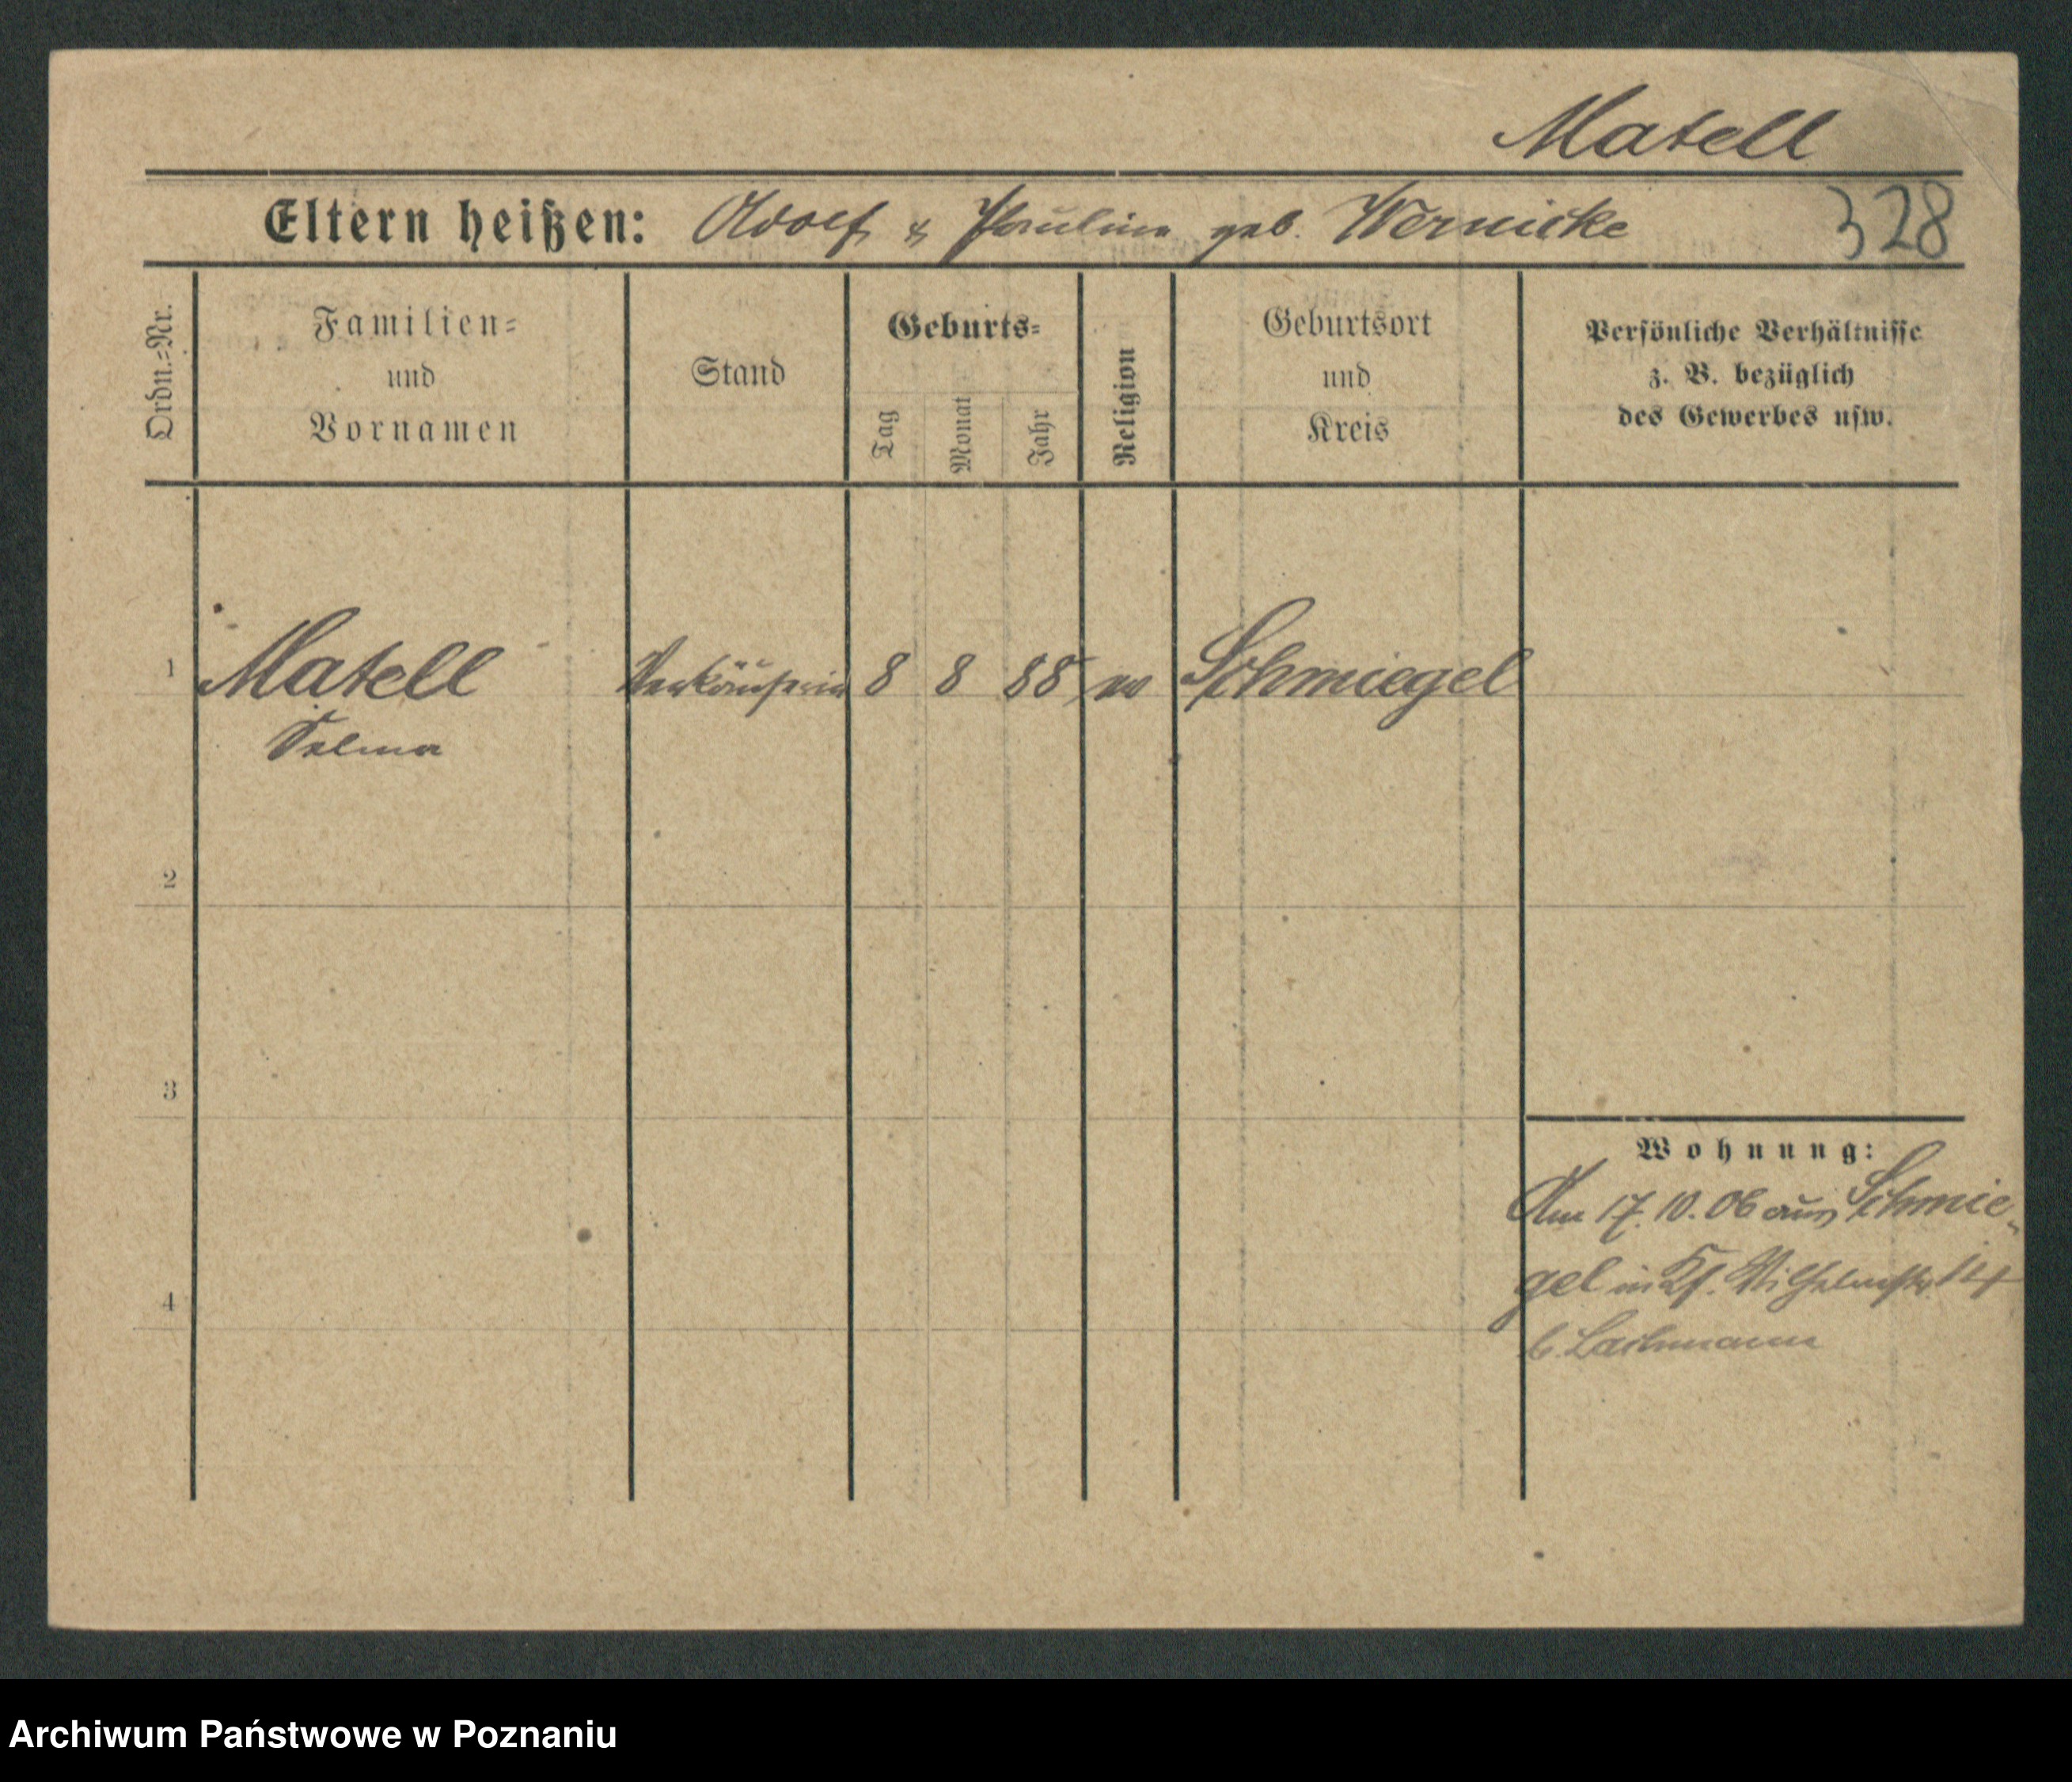 Matell
Eltern heißen: Adolf & Pauline geb. Wernicke
328
Ordn.=Nr.
Familien=
und
Vornamen
Stand
Geburts=
Tag
Monat
Jahr
Religion
Geburtsort
und
Kreis
Persönliche Verhältnisse
z. B. bezüglich
des Gewerbes usw.
1 Matell Verkäuferin 8 8 88 Schmiegel
Selma
2
3
4
Wohnung:
Am 17.10.06 aus Schmie-
gel in Wilhelmstr. 14
b. Lachmann
Archiwum Państwowe w Poznaniu